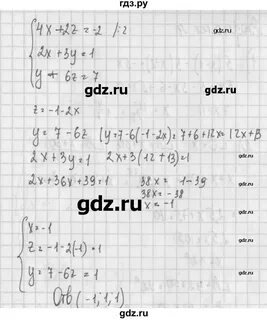 гдз.ру
{4x+2z=-2 /:2
2x+3y=1
y+6z=7
gdz.ru
z=-1-2x
y=7-6z (y=7-6(-1-2x)=7+6+12x=12x+13)
2x+3y=1 2x+3(12+13)=1
gdz.ru
2x+36x+39=1 38x=1-39
38x=-38
x=-1
gdz.ru
{x=-1
z=-1-2(-1)=1
y=7-6z=1
gdz.ru
Отв (-1;1;1)